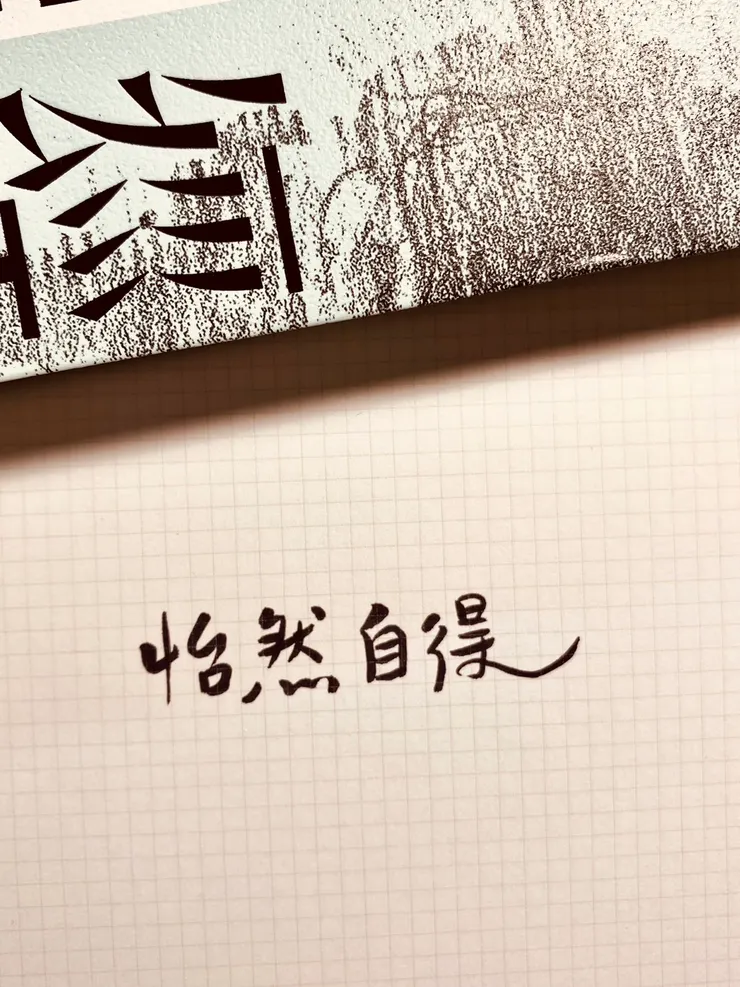 怡然自得